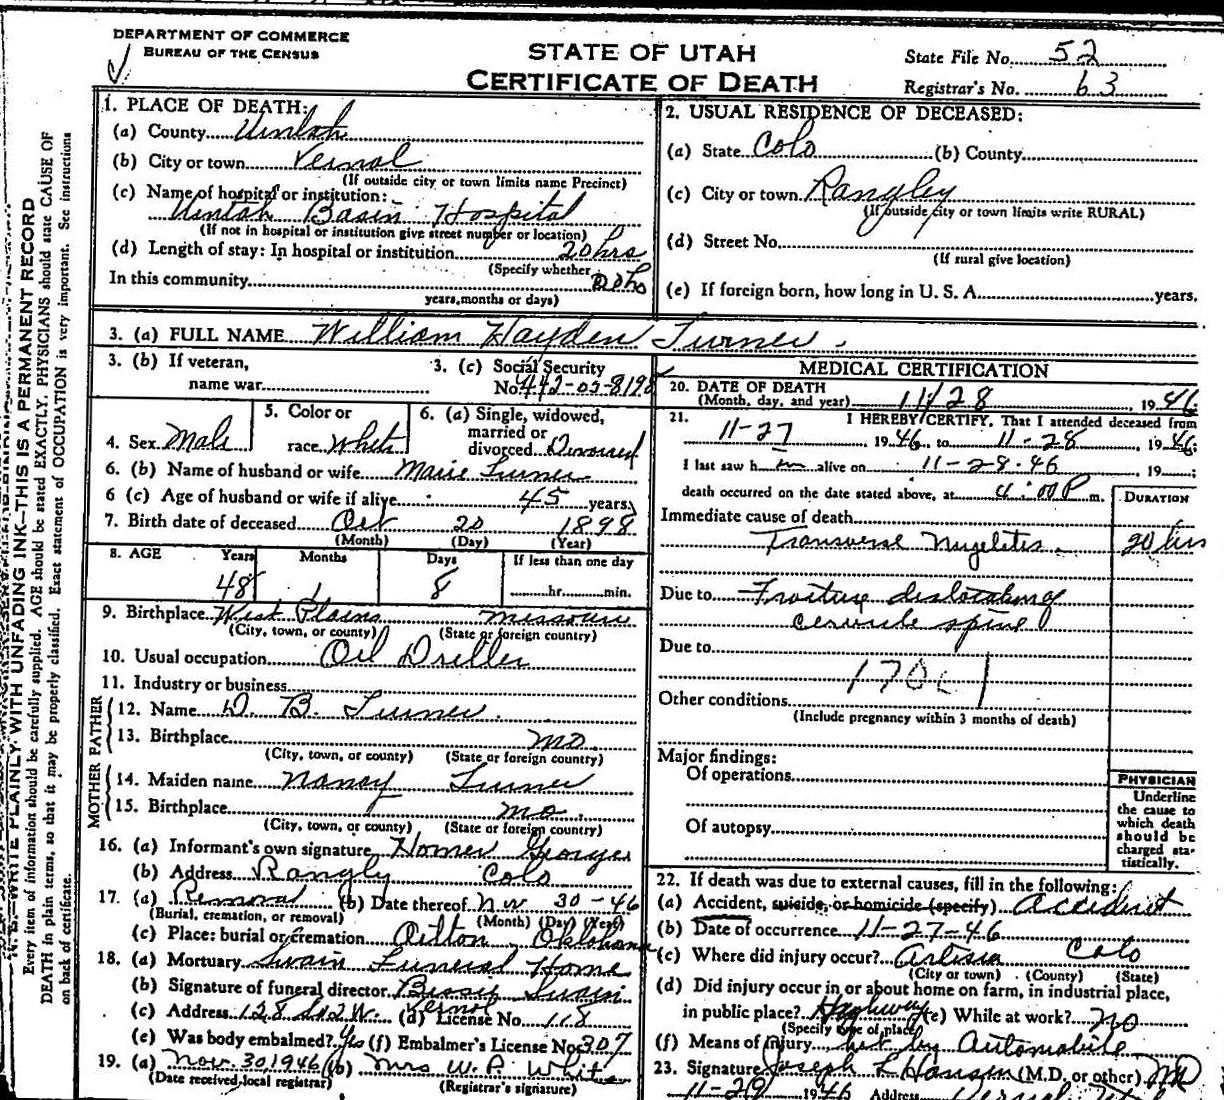 DEPARTMENT OF COMMERCE
BUREAU OF THE CENSUS
STATE OF UTAH
CERTIFICATE OF DEATH
State File No. 52
Registrar's No. 63
N. B.—WRITE PLAINLY WITH UNFADING INK—THIS IS A PERMANENT RECORD
Every item of information should be carefully supplied. AGE should be stated EXACTLY. PHYSICIANS should state CAUSE OF
DEATH in plain terms, so that it may be properly classified. Exact statement of OCCUPATION is very important. See instructions
on back of certificate.
1. PLACE OF DEATH:
(a) County Uintah
(b) City or town Vernal
(If outside city or town limits name Precinct)
(c) Name of hospital or institution:
Uintah Basin Hospital
(If not in hospital or institution give street number or location)
(d) Length of stay: In hospital or institution 20 hrs
(Specify whether
In this community 20 hs
years, months or days)
2. USUAL RESIDENCE OF DECEASED:
(a) State Colo (b) County
(c) City or town Rangley
(If outside city or town limits write RURAL)
(d) Street No.
(If rural give location)
(e) If foreign born, how long in U. S. A. years.
3. (a) FULL NAME William Hayden Turner
3. (b) If veteran,
name war
3. (c) Social Security
No. 442-05-8198
4. Sex Male
5. Color or
race White
6. (a) Single, widowed,
married or
divorced Divorced
6. (b) Name of husband or wife Marie Turner
6 (c) Age of husband or wife if alive 45 years
7. Birth date of deceased Oct 20 1898
(Month) (Day) (Year)
8. AGE Years Months Days If less than one day
48 1 8 hr. min.
9. Birthplace West Plains Missouri
(City, town, or county) (State or foreign country)
10. Usual occupation Oil Driller
11. Industry or business
FATHER
12. Name D. B. Turner
13. Birthplace Mo.
(City, town, or county) (State or foreign country)
MOTHER
14. Maiden name Nancy Turner
15. Birthplace Mo.
(City, town, or county) (State or foreign country)
16. (a) Informant's own signature Homer Georges
(b) Address Rangly Colo
17. (a) Removal (b) Date thereof Nov 30-46
(Burial, cremation, or removal) (Month) (Day) (Year)
(c) Place: burial or cremation Oilton, Oklahoma
18. (a) Mortuary Swain Funeral Home
(b) Signature of funeral director Bessie Swain
(c) Address 128 So. 2 W. Vernal (d) License No. 118
(e) Was body embalmed? Yes (f) Embalmer's License No. 307
19. (a) Nov. 30 1946 (b) Mrs W. P. White
(Date received local registrar) (Registrar's signature)
MEDICAL CERTIFICATION
20. DATE OF DEATH
(Month, day, and year) 11/28, 1946
21. I HEREBY CERTIFY, That I attended deceased from
11-27 1946, to 11-28, 1946;
I last saw him alive on 11-28-46, 19 ;
death occurred on the date stated above, at 4:00 P m.
DURATION
Immediate cause of death
Transverse Myelitis 20 hrs
Due to Fracture dislocation of
cervicle spine
Due to
170c1
Other conditions
(Include pregnancy within 3 months of death)
Major findings:
Of operations
Of autopsy
PHYSICIAN
Underline
the cause to
which death
should be
charged sta-
tistically.
22. If death was due to external causes, fill in the following:
(a) Accident, suicide, or homicide (specify) Accident
(b) Date of occurrence 11-27-46
(c) Where did injury occur? Artisia Colo
(City or town) (County) (State)
(d) Did injury occur in or about home on farm, in industrial place,
in public place? Highway (e) While at work? no
(Specify type of place)
(f) Means of Injury hit by Automobile
23. Signature Joseph L Hansen (M.D. or other) MD
11-29 1946 Address Vernal, Utah